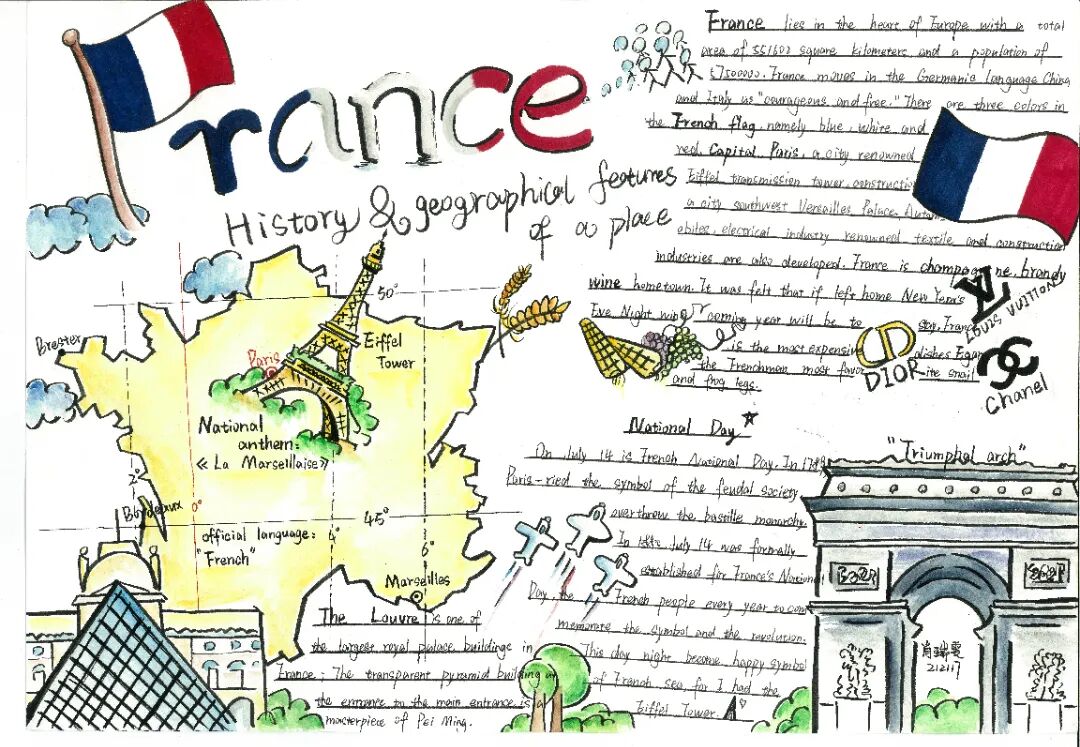 France
History & geographical features
of a place
France lies in the heart of Europe with a total
area of 551602 square kilometers and a population of
57500000. France moves in the Germania Language China
and Italy us "courageous and free." There are three colors in
the French flag, namely blue, white and
red. Capital Paris, a city renowned
Eiffel transmission tower, construction
a city southwest Versailles Palace. Autom
obiles, electrical industry renowned textile and construction
industries are also developed. France is champagne, brandy
wine hometown. It was felt that if left home New Year's
Eve Night wine, coming year will be to
France
is the most expensive dishes
the Frenchman most favorite snail
and frog legs.
LV
LOUIS VUITTON
CD
DIOR
Chanel
50°
Brester
Paris
Eiffel
Tower
National
anthem:
《La Marseillaise》
2°
Bordeaux
0°
45°
official language:
"French"
6°
Marseilles
National Day
On July 14 is French National Day. In 1789
Paris-ried the symbol of the feudal society
overthrew the bastille monarchy.
In July 14 was formally
established for France's National
Day, the French people every year to com
memorate the symbol and the revolution.
This day night become happy symbol
of French sea, for I had the
Eiffel Tower.
"Triumphal arch"
肖瑞雯
212117
The Louvre is one of
the largest royal palace buildings in
France; The transparent pyramid building at
the entrance to the main entrance is a
masterpiece of Pei Ming.